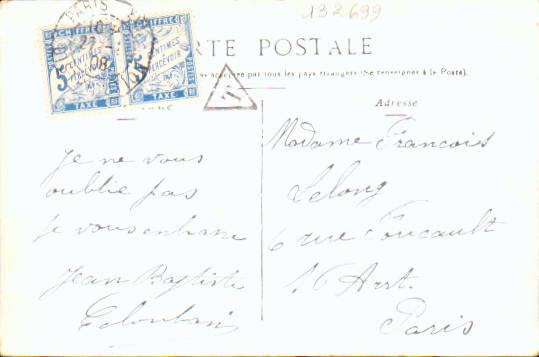 132699
PARIS
08
CHIFFRE
5 CENTIMES
A PERCEVOIR
TAXE
5 CENTIMES
PERCEVOIR
TAXE
RTE POSTALE
acceptée par tous les pays étrangers (Se renseigner à la Poste).
T
Adresse
Je ne vous
oublie pas
Je vous embrasse
Jean Baptiste
Madame Francois
Lelong
6 rue Foucault
16 Arrt.
Paris